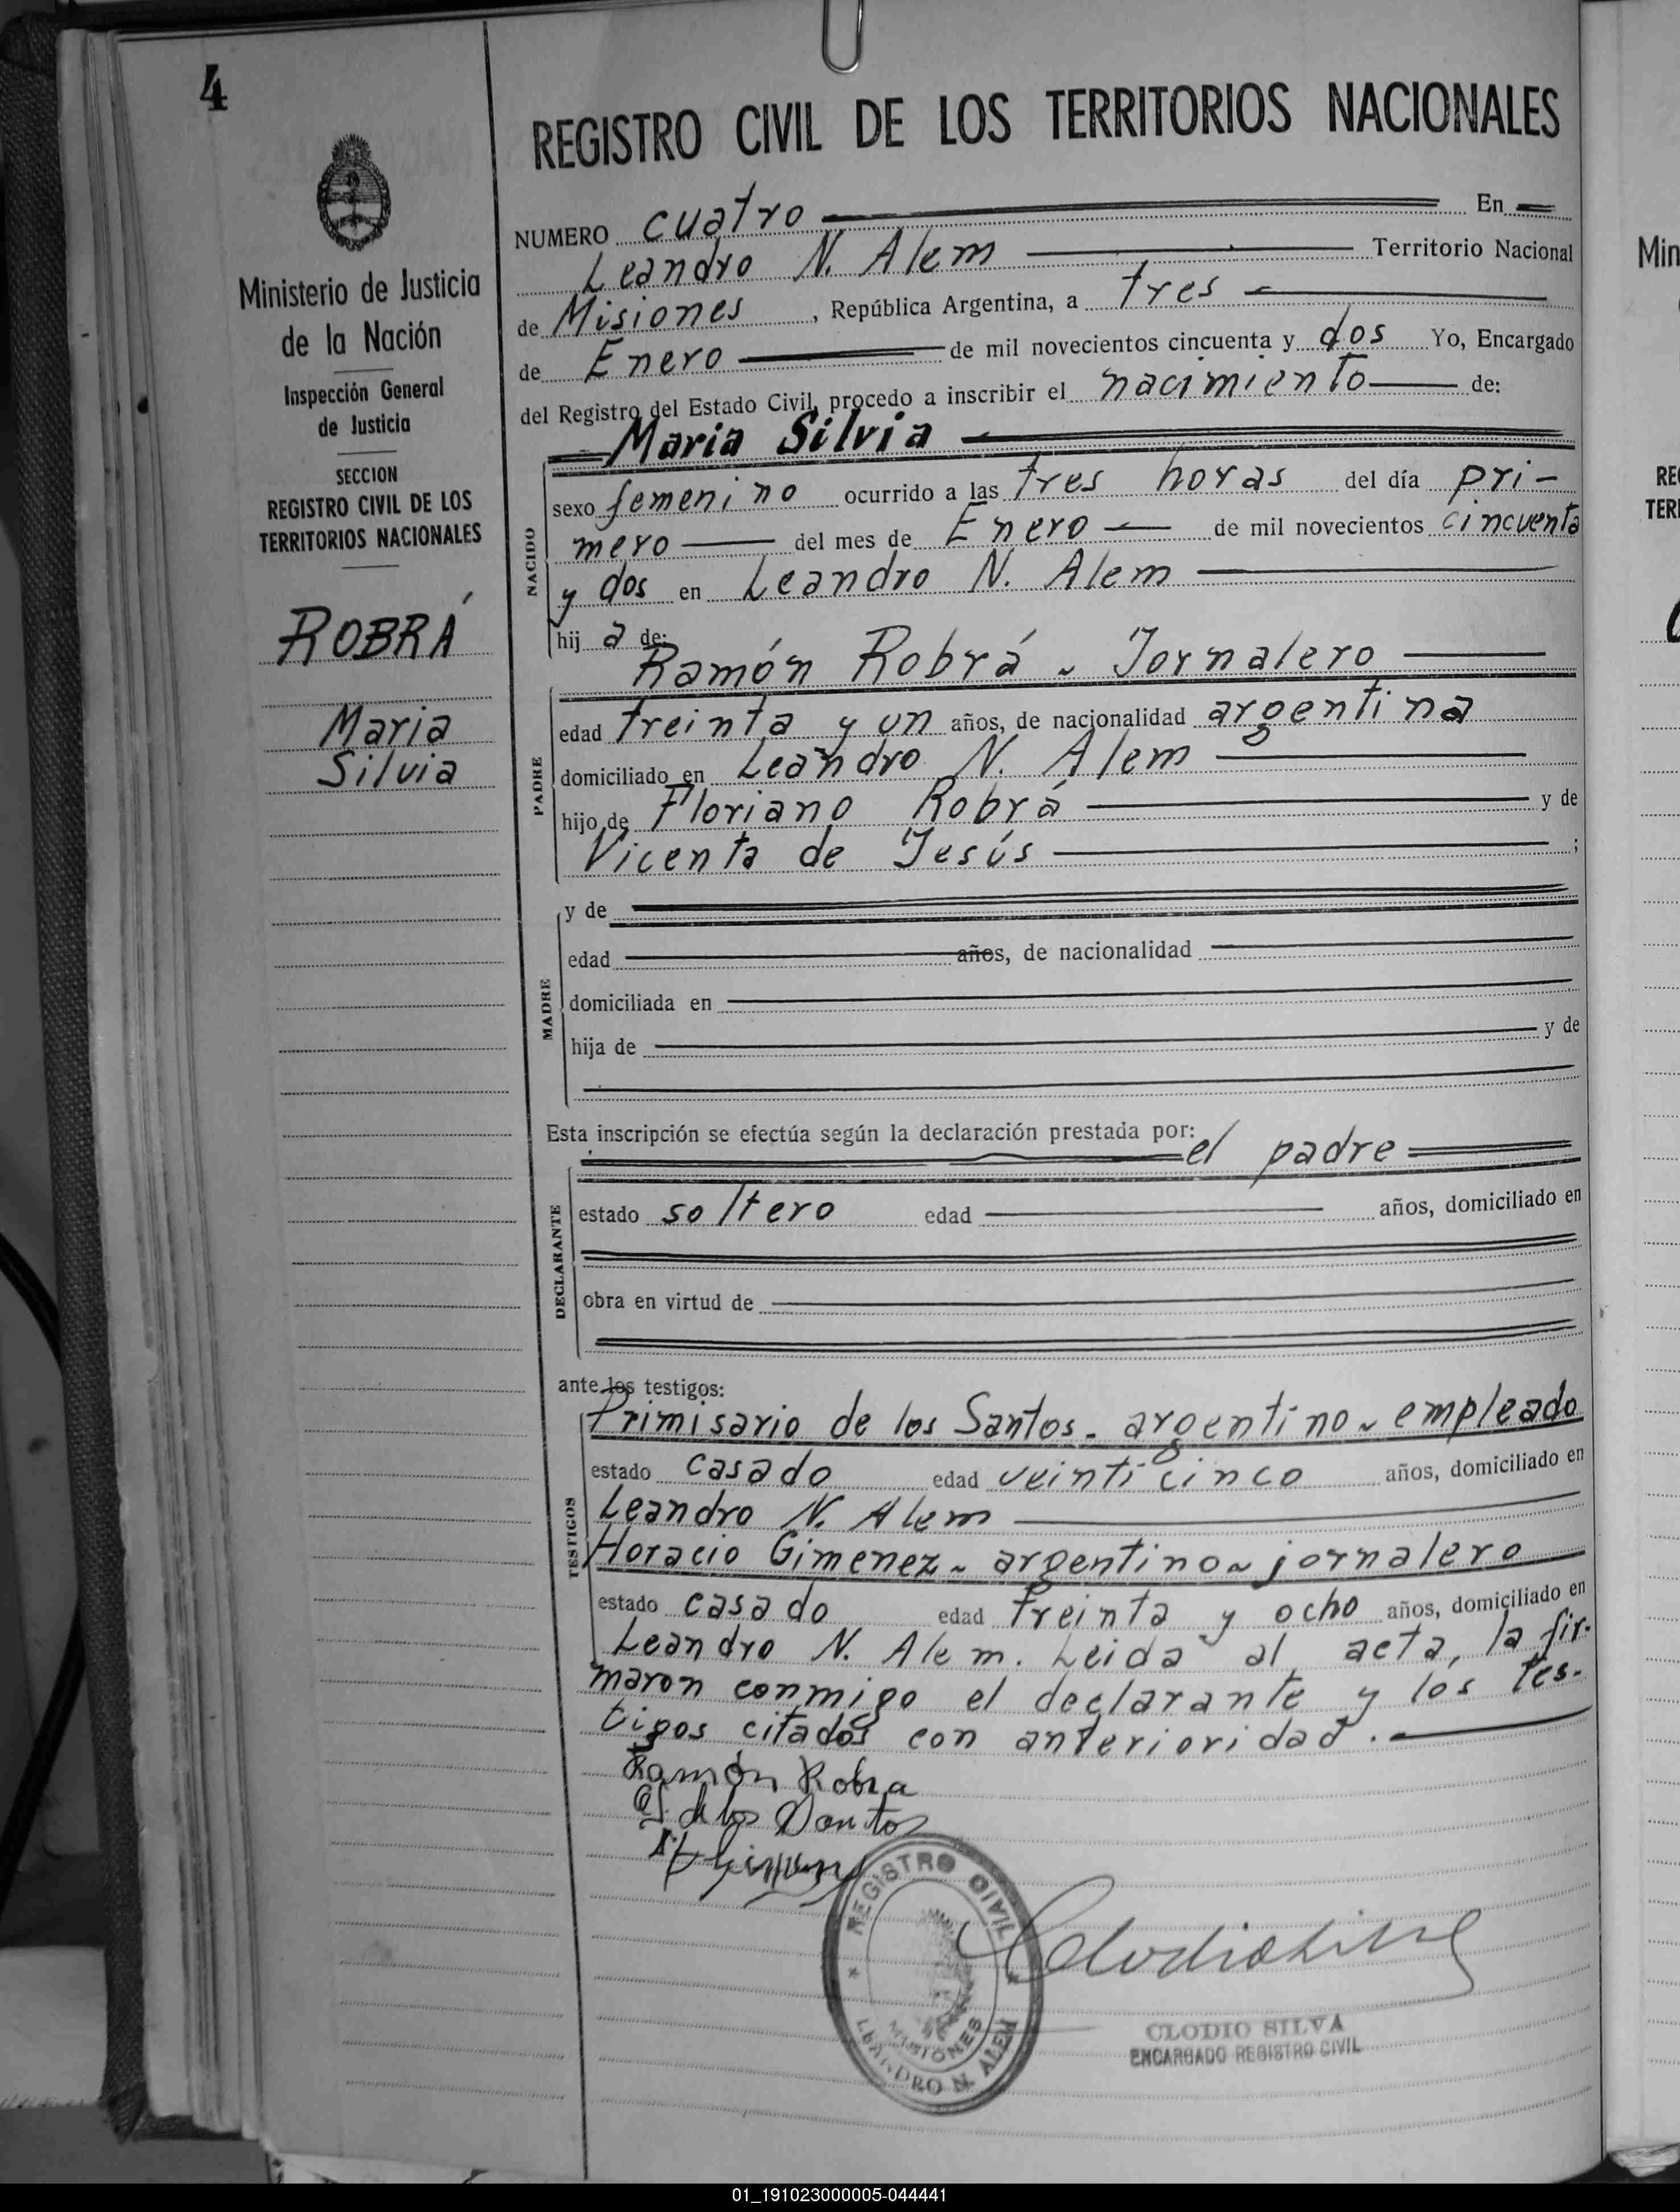 4
Ministerio de Justicia
de la Nación
Inspección General
de Justicia
SECCION
REGISTRO CIVIL DE LOS
TERRITORIOS NACIONALES
ROBRÁ
Maria
Silvia
REGISTRO CIVIL DE LOS TERRITORIOS NACIONALES
NUMERO cuatro En
Leandro N. Alem Territorio Nacional
de Misiones, República Argentina, a tres
de Enero de mil novecientos cincuenta y dos Yo, Encargado
del Registro del Estado Civil, procedo a inscribir el nacimiento de:
Maria Silvia
NACIDO
sexo femenino ocurrido a las tres horas del día pri-
mero del mes de Enero de mil novecientos cincuenta
y dos en Leandro N. Alem
hij a de:
Ramón Robrá - Jornalero
PADRE
edad treinta y un años, de nacionalidad argentina
domiciliado en Leandro N. Alem
hijo de Floriano Robrá y de
Vicenta de Jesús ;
MADRE
y de
edad años, de nacionalidad
domiciliada en
hija de y de
Esta inscripción se efectúa según la declaración prestada por:
el padre
DECLARANTE
estado soltero edad años, domiciliado en
obra en virtud de
ante los testigos:
TESTIGOS
Primisario de los Santos - argentino - empleado
estado casado edad veinticinco años, domiciliado en
Leandro N. Alem
Horacio Gimenez - argentino - jornalero
estado casado edad treinta y ocho años, domiciliado en
Leandro N. Alem. Leida al acta, la fir-
maron conmigo el declarante y los tes-
tigos citados con anterioridad.
Ramón Robra
de los Santos
REGISTRO CIVIL
MISIONES
LEANDRO N. ALEM
Clodio Silva
CLODIO SILVA
ENCARGADO REGISTRO CIVIL
Min
01_191023000005-044441